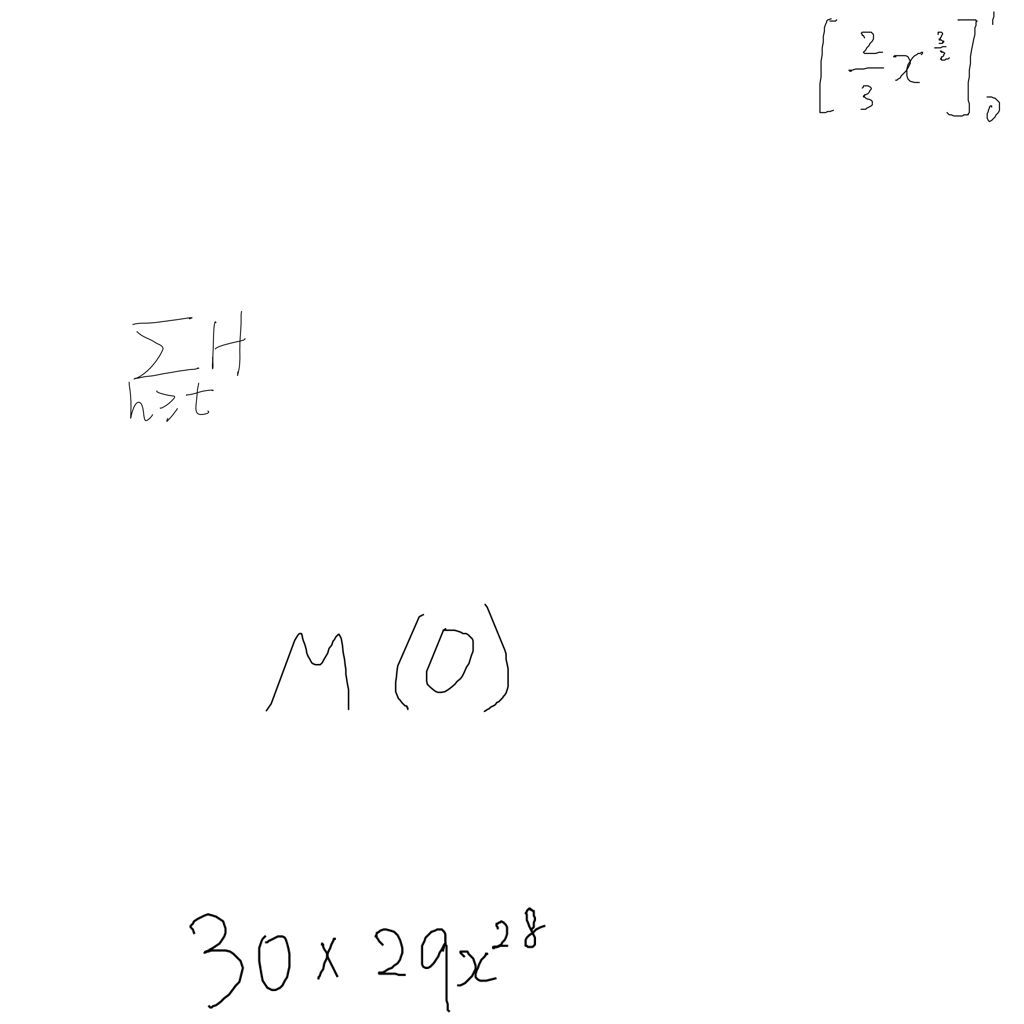 $\left[ \frac{2}{3} x^{\frac{3}{2}} \right]_0^1$
$\sum_{h \geqslant t} H$
$M(0)$
$30 \times 29x^{28}$